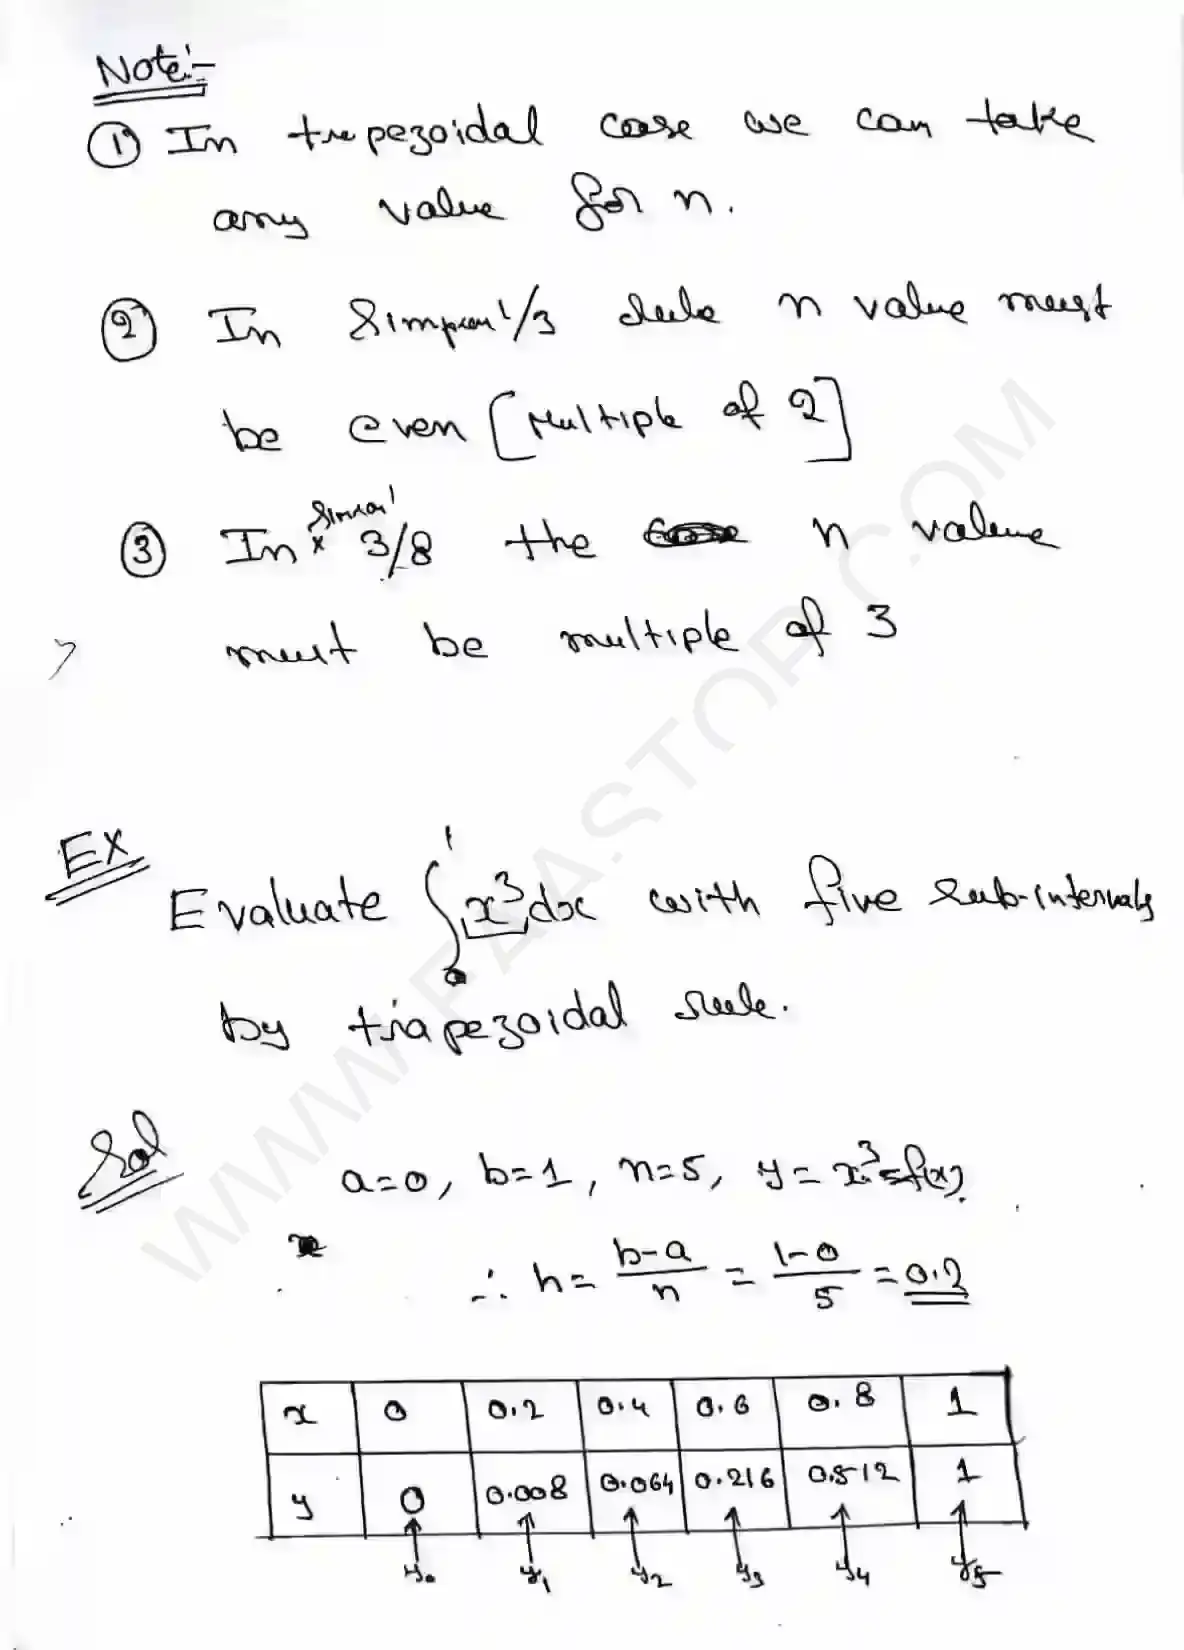 Note:-
① In trapezoidal case we can take
any value for n.
② In Simpson' 1/3 rule n value must
be even [Multiple of 2]
Simson'
③ In × 3/8 the n value
must be multiple of 3
EX
Evaluate ∫₀¹ x³dx with five sub-intervals
by trapezoidal rule.
Sol
a=0, b=1, n=5, y=x³=f(x).
∴ h = (b-a)/n = (1-0)/5 = 0.2
x 0 0.2 0.4 0.6 0.8 1
y 0 0.008 0.064 0.216 0.512 1
y₀ y₁ y₂ y₃ y₄ y₅